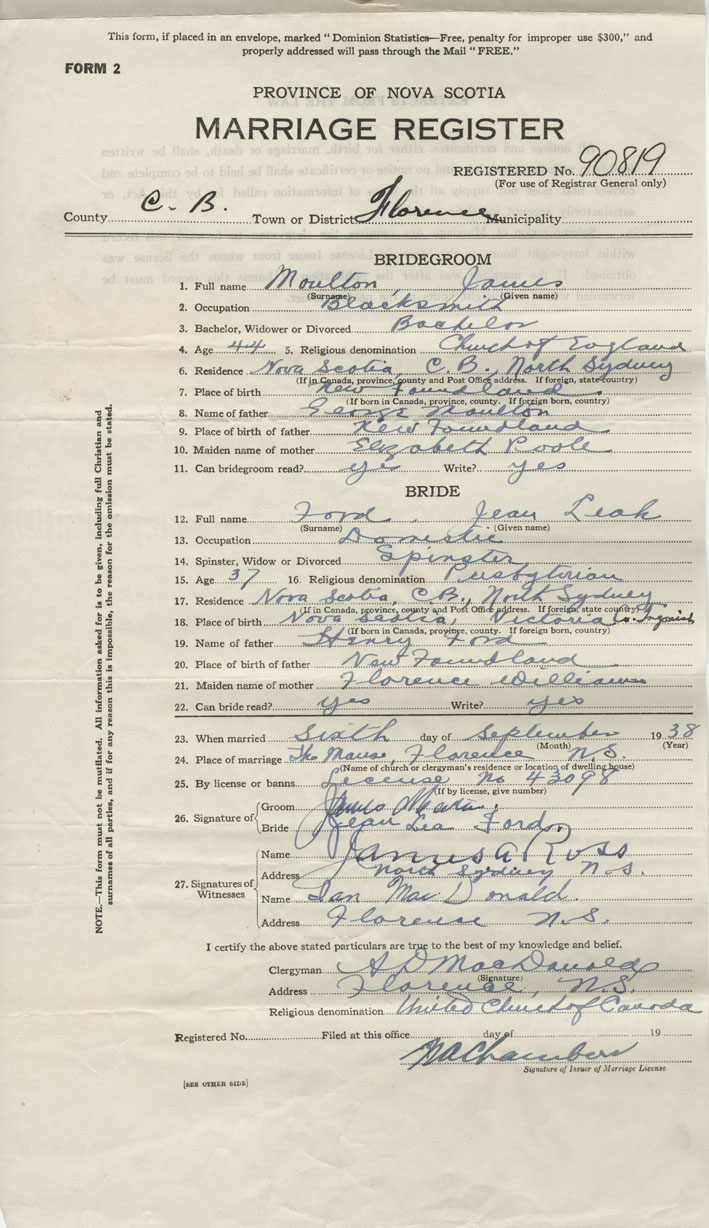 This form, if placed in an envelope, marked "Dominion Statistics—Free, penalty for improper use $300," and
properly addressed will pass through the Mail "FREE."
FORM 2
PROVINCE OF NOVA SCOTIA
MARRIAGE REGISTER
REGISTERED No. 90819
(For use of Registrar General only)
County C. B. Town or District Florence Municipality
BRIDEGROOM
1. Full name Moulton, James
(Surname) (Given name)
2. Occupation Blacksmith
3. Bachelor, Widower or Divorced Bachelor
4. Age 44 5. Religious denomination Church of England
6. Residence Nova Scotia, C.B., North Sydney
(If in Canada, province, county and Post Office address. If foreign, state country)
7. Place of birth New Foundland
(If born in Canada, province, county. If foreign born, country)
8. Name of father George Moulton
9. Place of birth of father New Foundland
10. Maiden name of mother Elizabeth Poole
11. Can bridegroom read? yes Write? yes
BRIDE
12. Full name Ford, Jean Leah
(Surname) (Given name)
13. Occupation Domestic
14. Spinster, Widow or Divorced Spinster
15. Age 37 16. Religious denomination Presbyterian
17. Residence Nova Scotia, C.B., North Sydney
(If in Canada, province, county and Post Office address. If foreign state country)
18. Place of birth Nova Scotia, Victoria Co.
(If born in Canada, province, county. If foreign born, country)
19. Name of father Henry Ford
20. Place of birth of father New Foundland
21. Maiden name of mother Florence Williams
22. Can bride read? yes Write? yes
23. When married Sixth day of September 1938
(Month) (Year)
24. Place of marriage The Manse, Florence N.S.
(Name of church or clergyman's residence or location of dwelling house)
25. By license or banns License No 43098
(If by license, give number)
26. Signature of
Groom James
Bride Jean Lea Ford
27. Signatures of Witnesses
Name James A Ross
Address North Sydney N.S.
Name Ian MacDonald.
Address Florence N.S.
I certify the above stated particulars are true to the best of my knowledge and belief.
Clergyman A D MacDonald
(Signature)
Address Florence, N.S.
Religious denomination United Church of Canada
Registered No. Filed at this office day of 19
Chambers
Signature of Issuer of Marriage License.
[SEE OTHER SIDE]
NOTE.—This form must not be mutilated. All information asked for is to be given, including full Christian and
surnames of all parties, and if for any reason this is impossible, the reason for the omission must be stated.